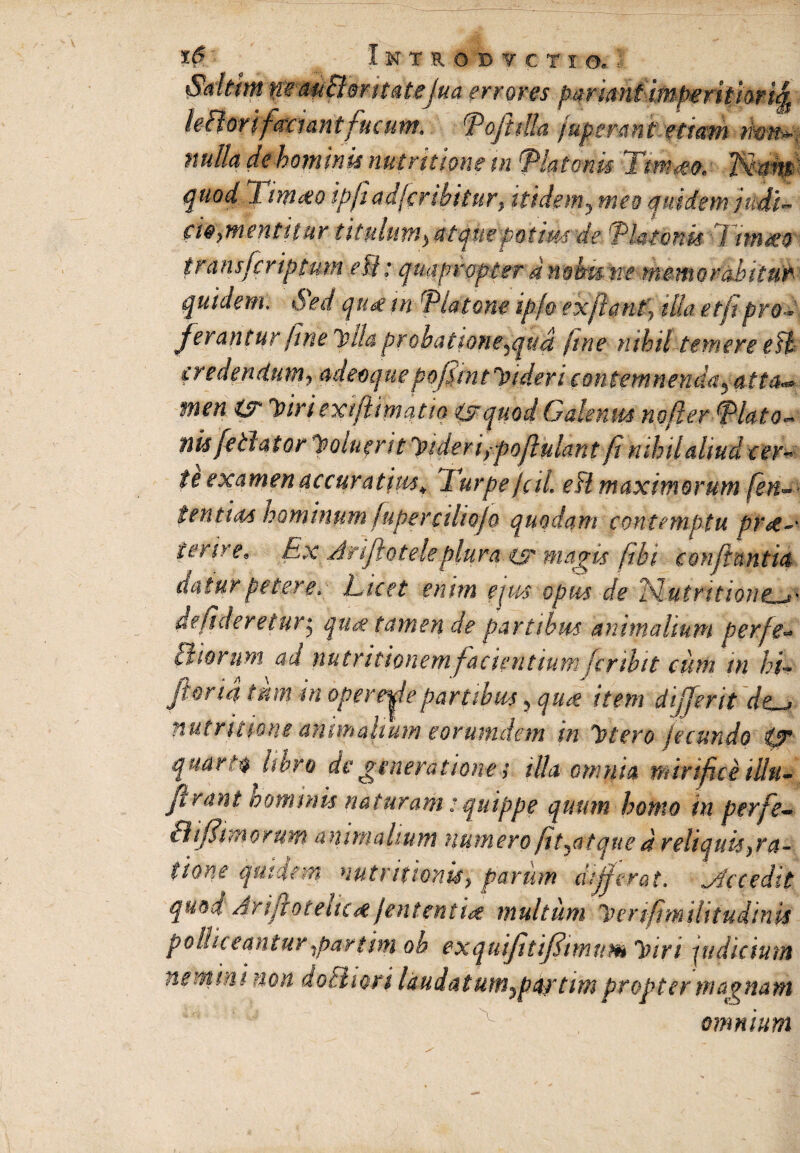 16 INTRODVCTIO.
Saltim ne auctoritate sua errores pariant imperitioriq;
lectori faciant fucum. Postilla superant etiam non-
nulla de hominis nutritione in Platonis Timæo. Nam
quod Timæo ipsi adscribitur, itidem, meo quidem judi-
cio, mentitur titulum, atque potius de Platonis Timæo
transscriptum est: quapropter à nobis ne memorabitur
quidem. Sed quæ in Platone ipso exstant, illa etsi pro-
ferantur sine vlla probatione, quâ sine nihil temere est
credendum, adeoque possint videri contemnenda, atta-
men & viri existimatio & quod Galenus noster Plato-
nis sectator voluerit videri, postulant si nihil aliud cer-
tè examen accuratius. Turpe scil. est maximorum sen-
tentias hominum superciliojo quodam contemptu præ-
terire. Ex Aristotele plura & magis sibi constantia
datur petere. Licet enim ejus opus de Nutritione
desideretur; quæ tamen de partibus animalium perfe-
ctiorum ad nutritionem facientium scribit cùm in hi-
storiâ tùm in opere de partibus, quæ item differit de
nutritione animalium eorumdem in vtero secundo &
quarto libro de generatione; illa omnia mirificè illu-
strant hominis naturam: quippe quum homo in perfe-
ctissimorum animalium numero sit, atque à reliquis, ra-
tione quidem nutritionis, parùm differat. Accedit
quod Aristotelicæ sententiæ multùm verisimilitudinis
polliceantur, partim ob exquisitissimum viri judicium
nemini non doctiori laudatum, partim propter magnam
omnium